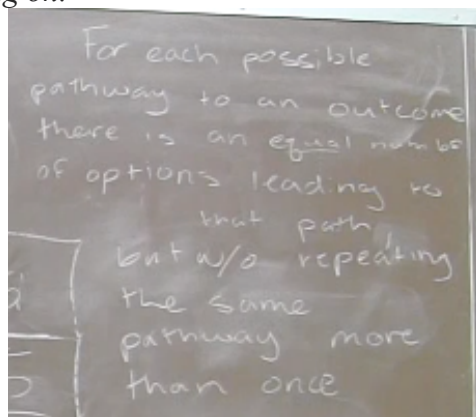 For each possible
pathway to an outcome
there is an equal numbe
of options leading to
that path,
but w/o repeating
the same
pathway more
than once